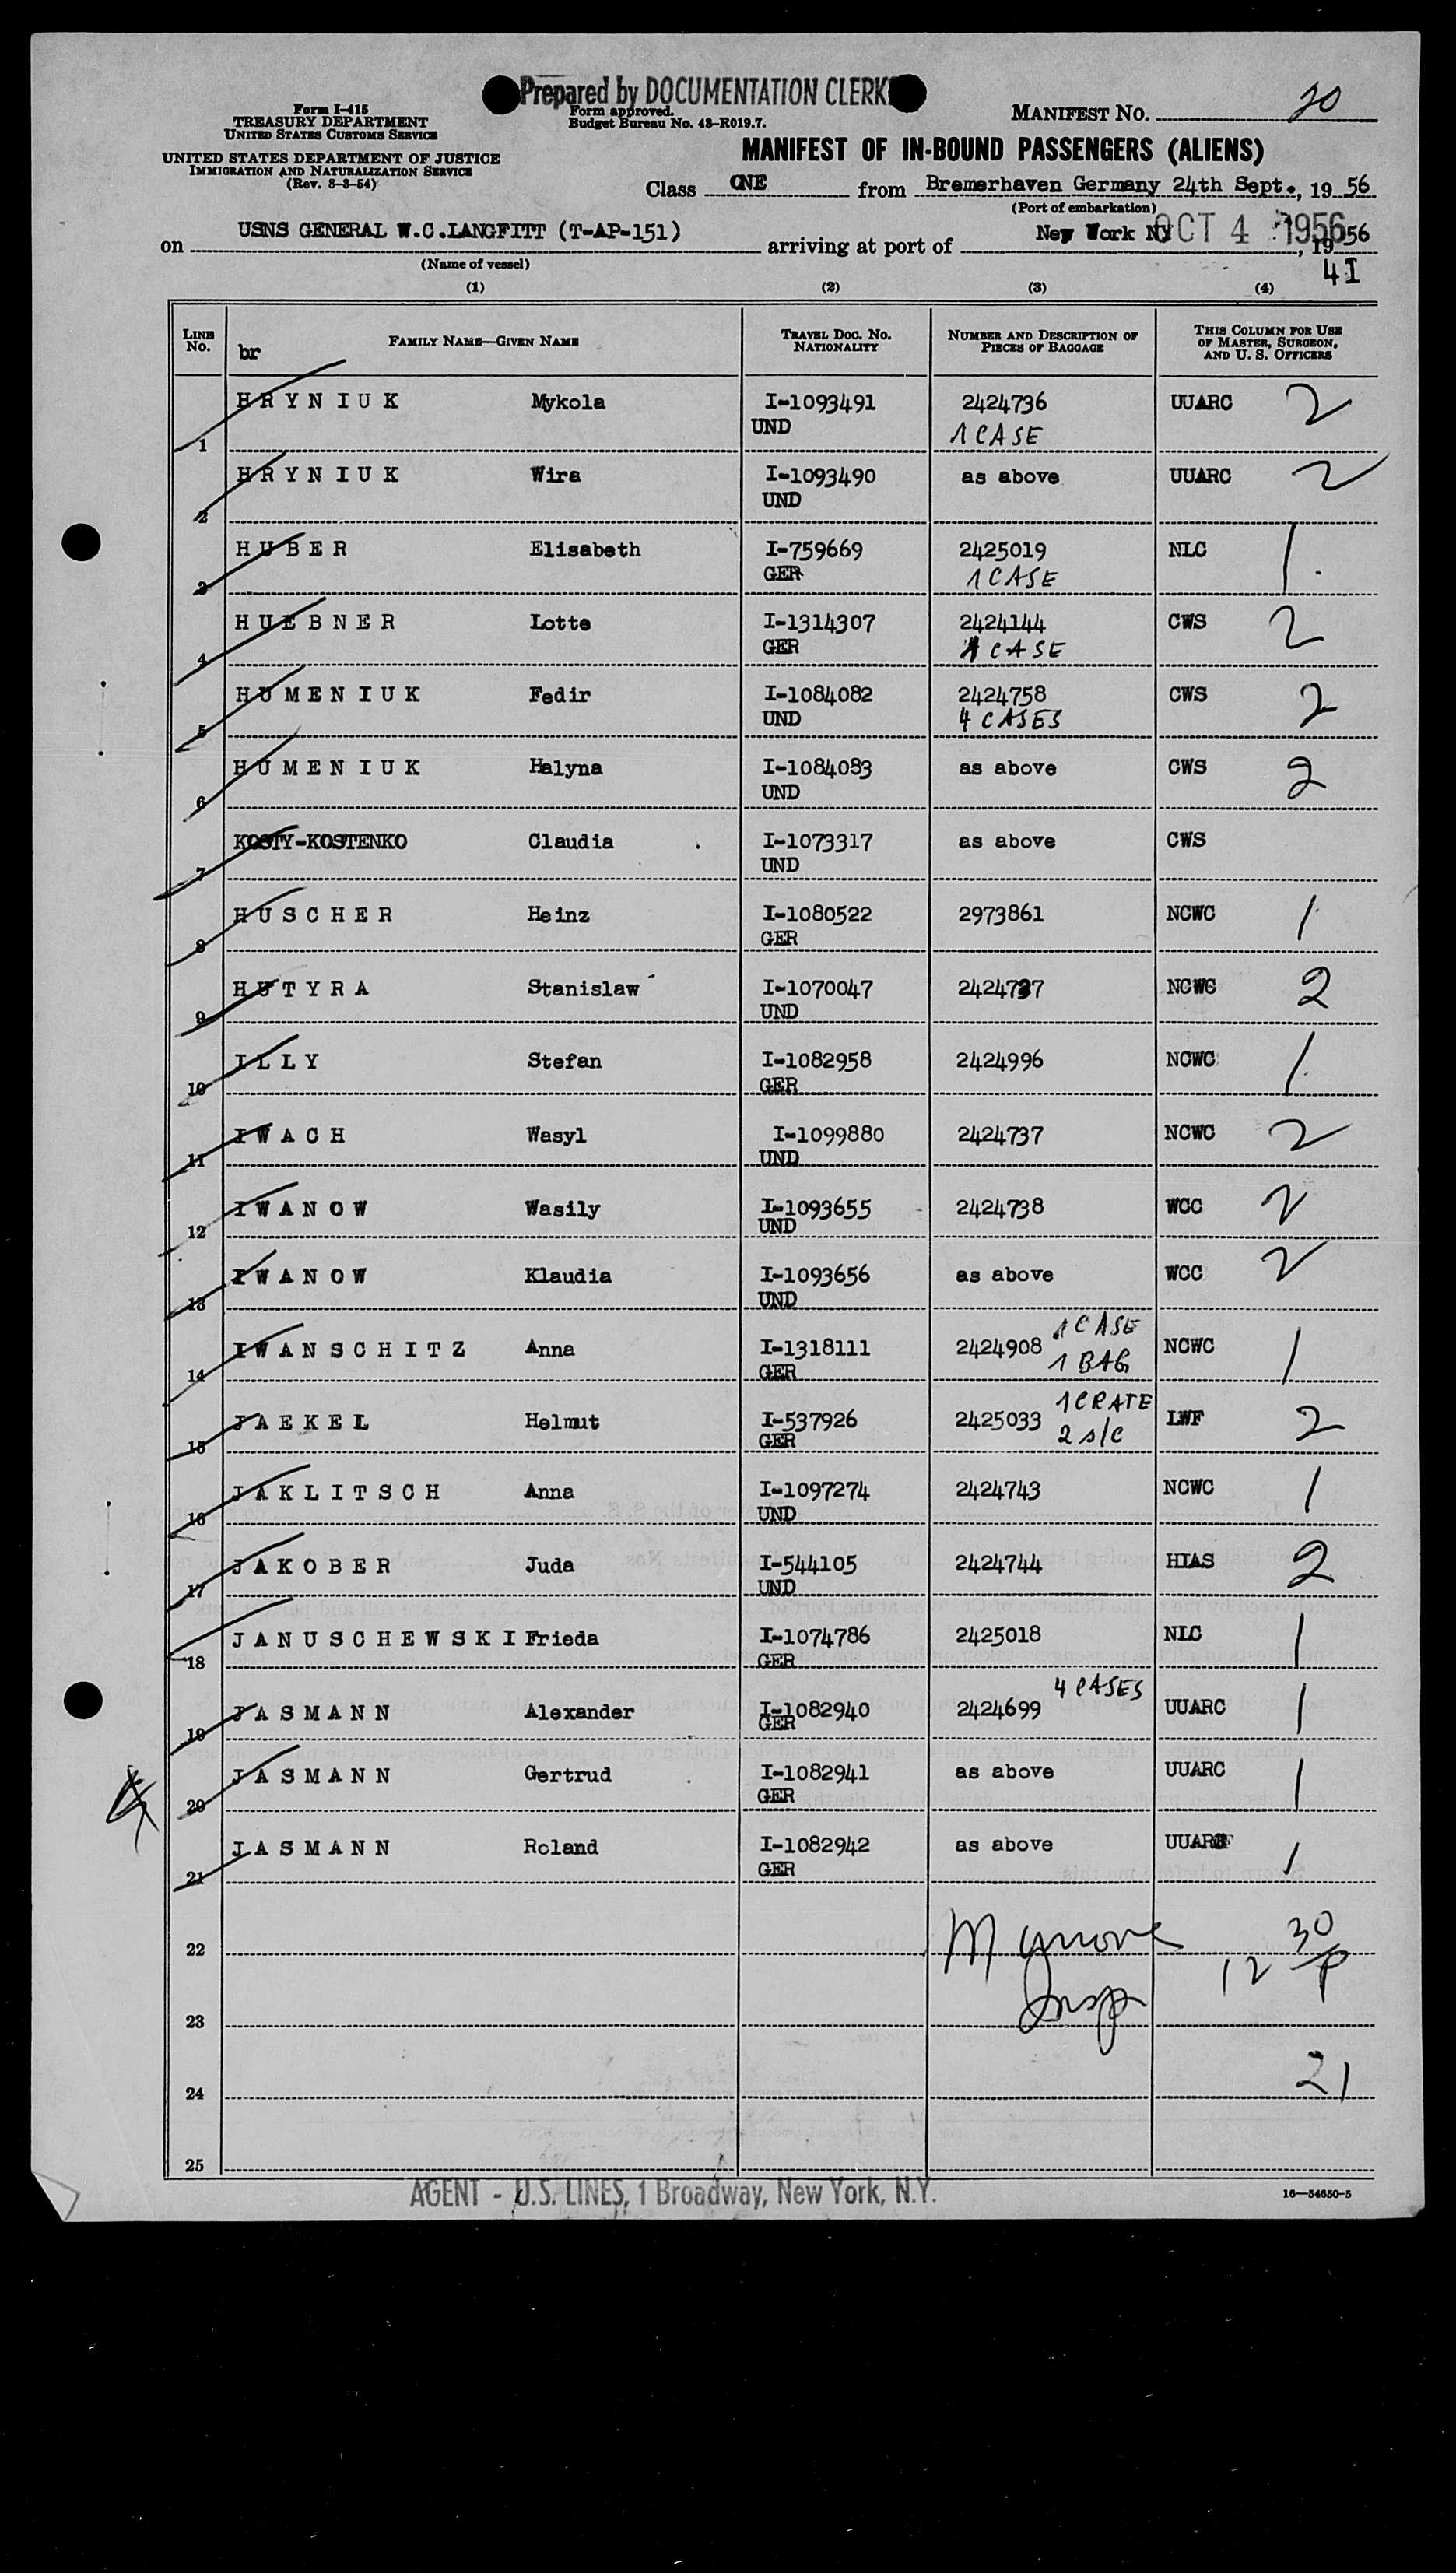 Prepared by DOCUMENTATION CLERK
Form I-415
TREASURY DEPARTMENT
UNITED STATES CUSTOMS SERVICE
UNITED STATES DEPARTMENT OF JUSTICE
IMMIGRATION AND NATURALIZATION SERVICE
(Rev. 8-3-54)
Form approved.
Budget Bureau No. 43-R019.7.
MANIFEST NO. 20
MANIFEST OF IN-BOUND PASSENGERS (ALIENS)
Class ONE from Bremerhaven Germany 24th Sept., 19 56
(Port of embarkation)
on USNS GENERAL W.C.LANGFITT (T-AP-151) arriving at port of New York NY OCT 4 1956, 1956
(Name of vessel)
41
(1) (2) (3) (4)
LINE NO. br FAMILY NAME—GIVEN NAME TRAVEL DOC. NO. NATIONALITY NUMBER AND DESCRIPTION OF PIECES OF BAGGAGE THIS COLUMN FOR USE OF MASTER, SURGEON, AND U. S. OFFICERS
1 HRYNIUK Mykola I-1093491 UND 2424736 1 CASE UUARC 2
2 HRYNIUK Wira I-1093490 UND as above UUARC 2
3 HUBER Elisabeth I-759669 GER 2425019 1 CASE NLC 1
4 HUEBNER Lotte I-1314307 GER 2424144 1 CASE CWS 2
5 HUMENIUK Fedir I-1084082 UND 2424758 4 CASES CWS 2
6 HUMENIUK Halyna I-1084083 UND as above CWS 2
7 KOSTY-KOSTENKO Claudia I-1073317 UND as above CWS
8 HUSCHER Heinz I-1080522 GER 2973861 NCWC 1
9 HUTYRA Stanislaw I-1070047 UND 2424727 NCWC 2
10 ILLY Stefan I-1082958 GER 2424996 NCWC 1
11 IWACH Wasyl I-1099880 UND 2424737 NCWC 2
12 IWANOW Wasily I-1093655 UND 2424738 WCC 2
13 IWANOW Klaudia I-1093656 UND as above WCC 2
14 IWANSCHITZ Anna I-1318111 GER 2424908 1 CASE 1 BAG NCWC 1
15 JAEKEL Helmut I-537926 GER 2425033 1 CRATE 2 s/c LWF 2
16 JAKLITSCH Anna I-1097274 UND 2424743 NCWC 1
17 JAKOBER Juda I-544105 UND 2424744 HIAS 2
18 JANUSCHEWSKI Frieda I-1074786 GER 2425018 NLC 1
19 JASMANN Alexander I-1082940 GER 2424699 4 CASES UUARC 1
20 JASMANN Gertrud I-1082941 GER as above UUARC 1
21 JASMANN Roland I-1082942 GER as above UUARC 1
22 12 30 P
23 Insp
24 21
25
AGENT - U.S. LINES, 1 Broadway, New York, N.Y.
16—54650-5